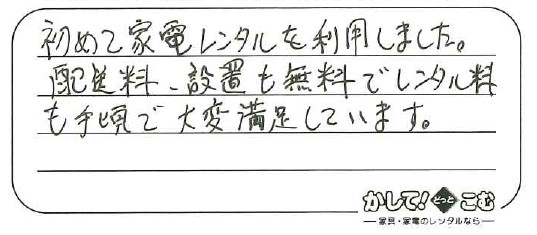 初めて家電レンタルを利用しました。
配送料、設置も無料でレンタル料
も手頃で大変満足しています。
かして!どっとこむ
家具・家電のレンタルなら